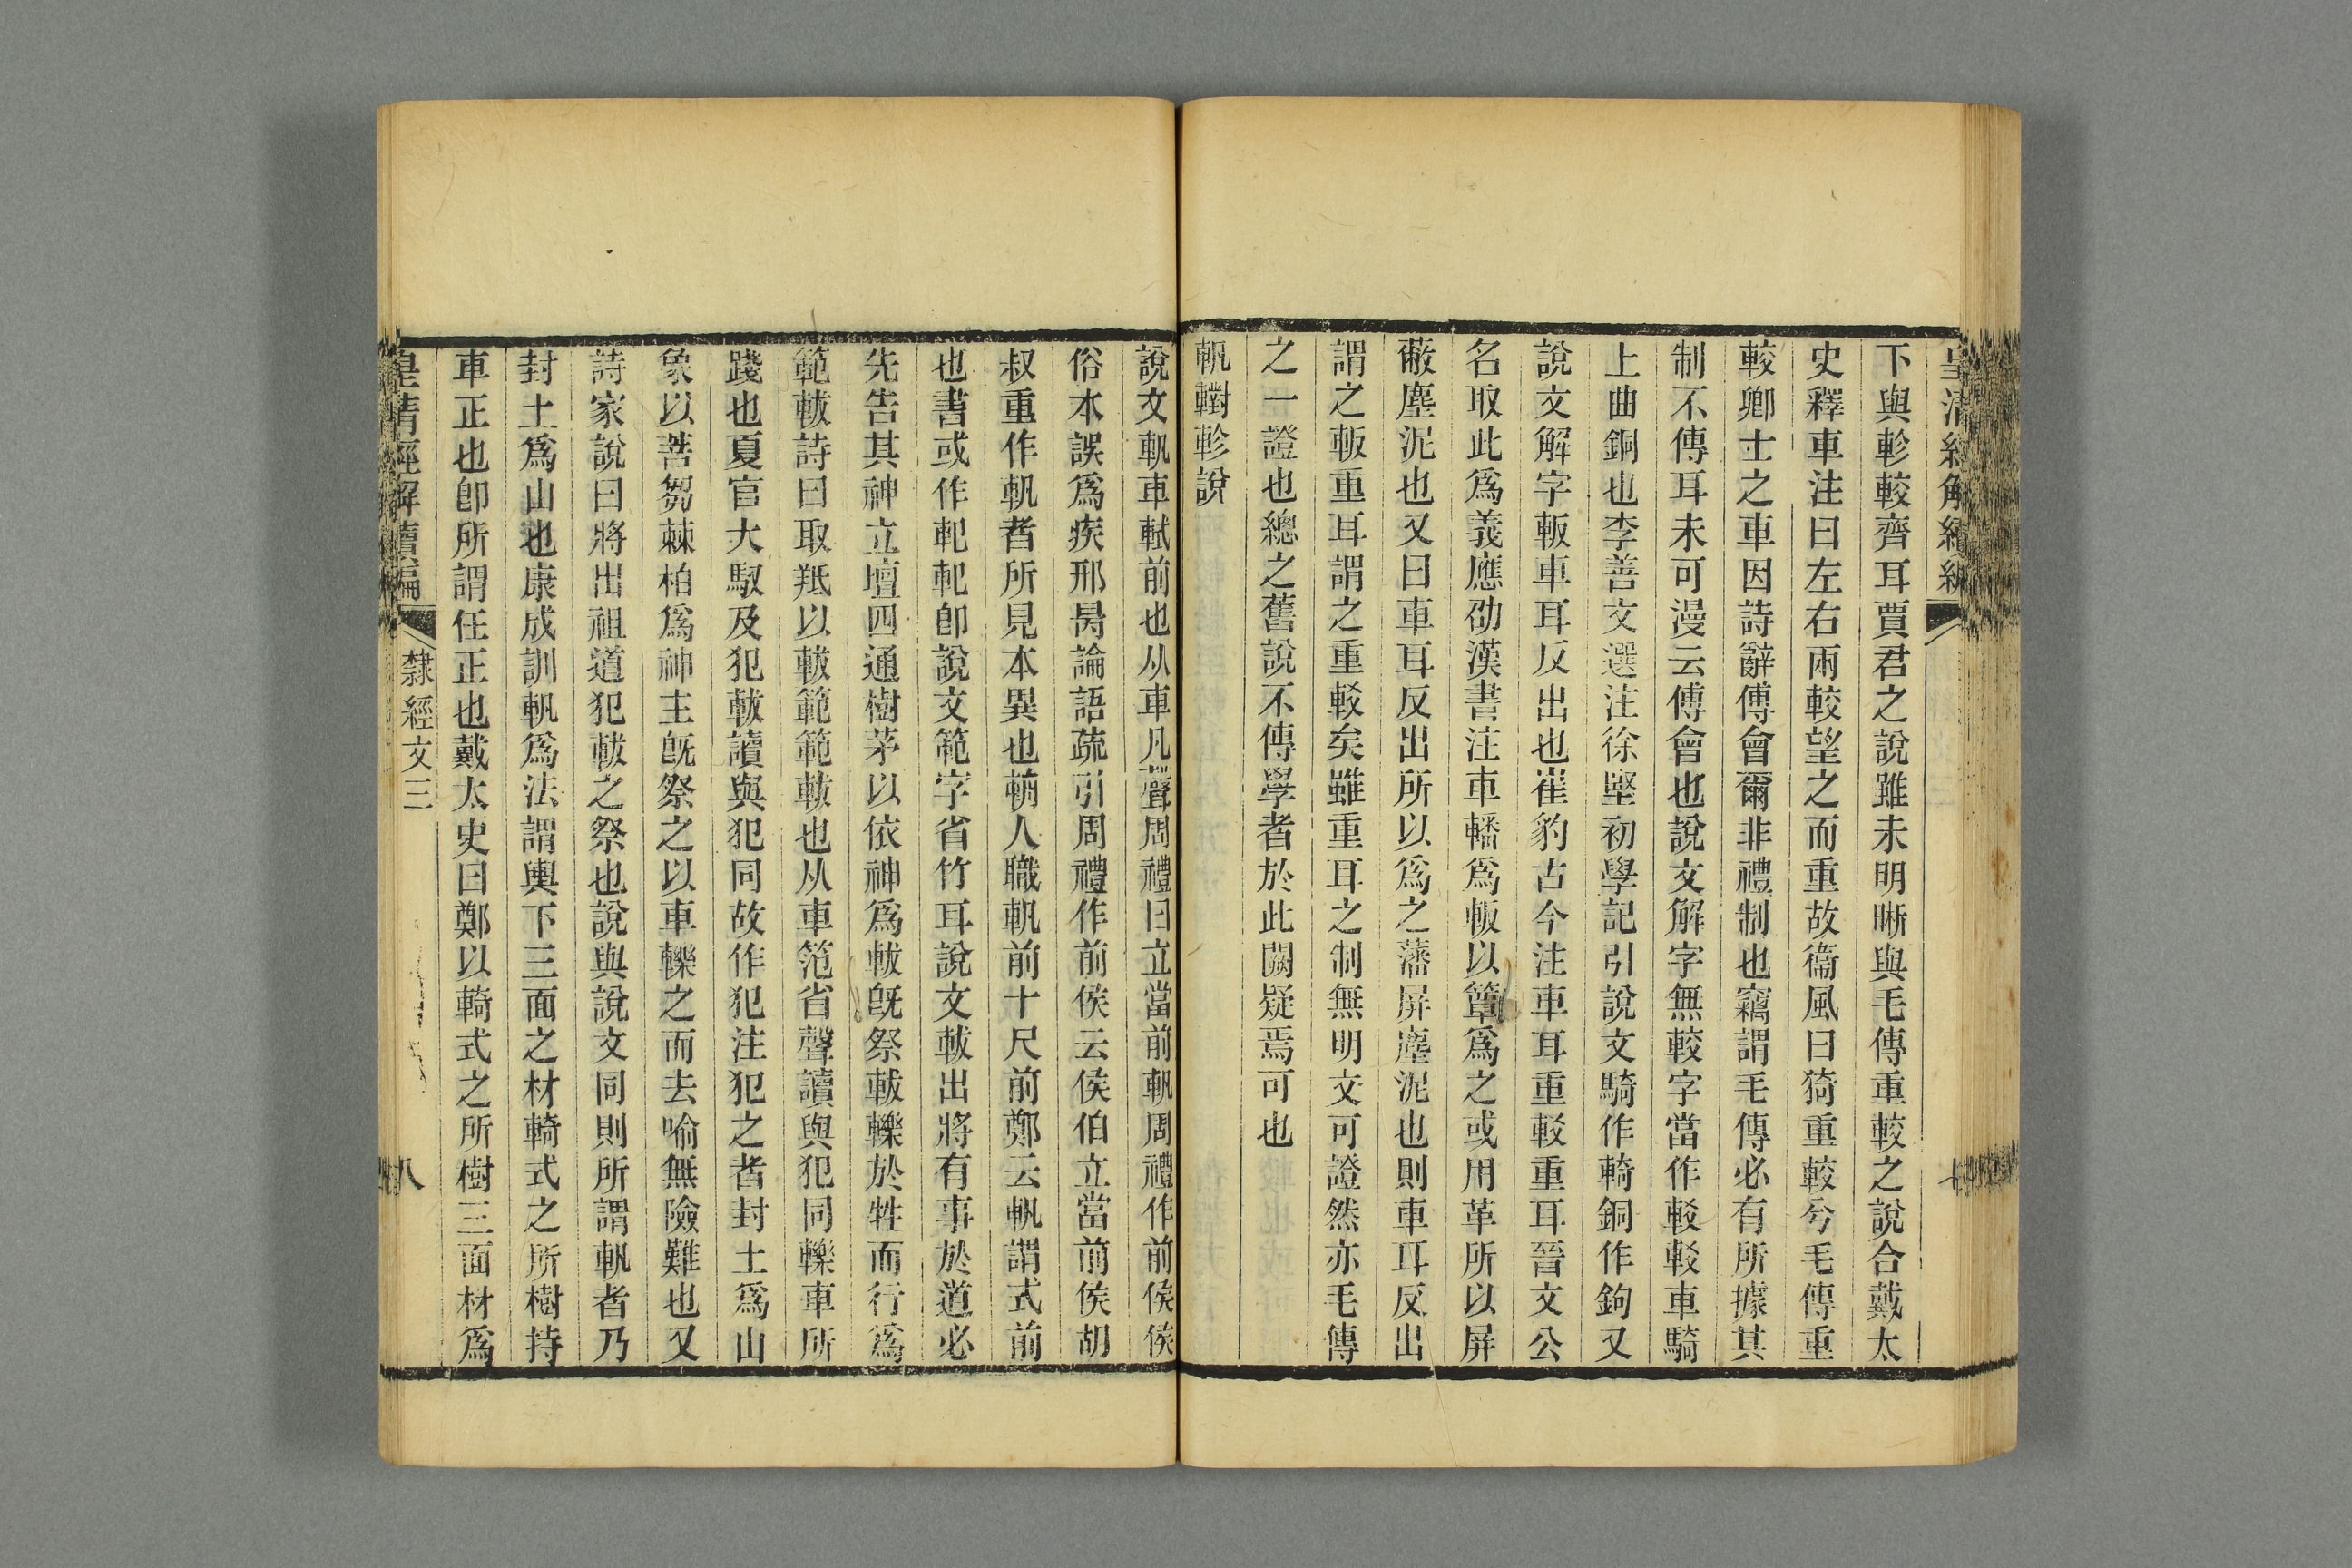 下與軫較齊耳賈君之說雖未明晰與毛傳重較之說合戴太
史釋車注曰左右兩較望之而重故衞風曰猗重較兮毛傳重
較卿士之車因詩辭傅會爾非禮制也竊謂毛傳必有所據其
制不傳耳未可漫云傅會也說文解字無較字當作䡈䡈車騎
上曲銅也李善文選注徐堅初學記引說文騎作輢銅作鉤又
說文解字轓車耳反出也崔豹古今注車耳重䡈重耳晉文公
名取此爲義應劭漢書注車轓爲𨊻以簟爲之或用革所以屏
蔽塵泥也又曰車耳反出所以爲之藩屏塵泥也則車耳反出
謂之𨊻重耳謂之重䡈矣雖重耳之制無明文可證然亦毛傳
之一證也總之舊說不傳學者於此闕疑焉可也
軓轛軫說
說文軓車軾前也从車凡聲周禮曰立當前軓周禮作前侯侯
俗本誤爲疾邢昺論語疏引周禮作前侯云侯伯立當前侯胡
叔重作軓者所見本異也輈人職軓前十尺前鄭云軓謂式前
也書或作軋軋卽說文範字省竹耳說文軷出將有事於道必
先告其神立壇四通樹茅以依神爲軷旣祭軷轢於牲而行爲
範軷詩曰取羝以軷範範軷也从車笵省聲讀與犯同轢車所
踐也夏官大馭及犯軷讀與犯同故作犯注犯之者封土爲山
象以菩芻棘柏爲神主旣祭之以車轢之而去喻無險難也又
詩家說曰將出祖道犯軷之祭也說與說文同則所謂軓者乃
封土爲山也康成訓軓爲法謂輿下三面之材輢式之所樹持
車正也卽所謂任正也戴太史曰鄭以輢式之所樹三面材爲
皇清經解續編
隸經文三
八